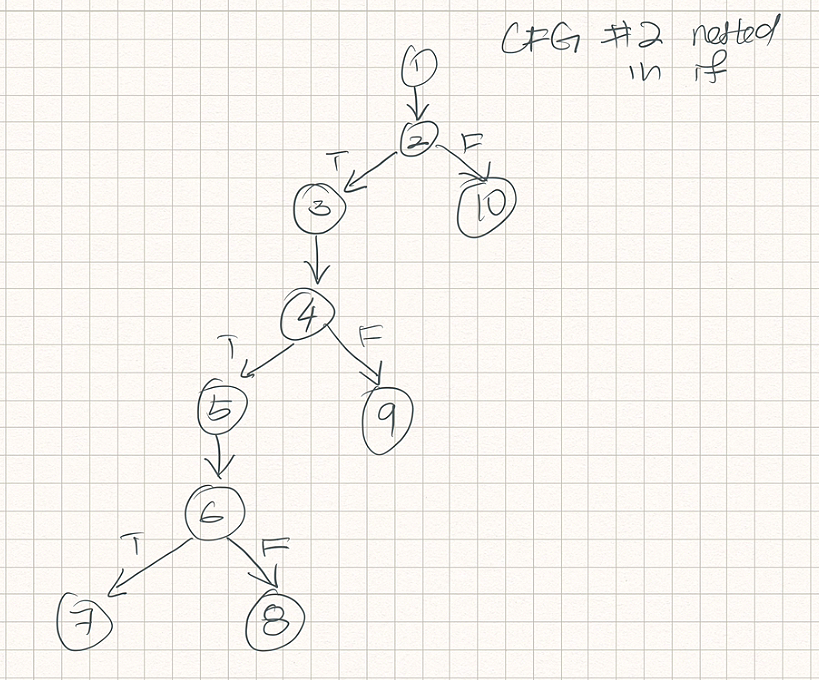 CFG #2 nested
in if
1
2
T F
3 10
4
T F
5 9
6
T F
7 8